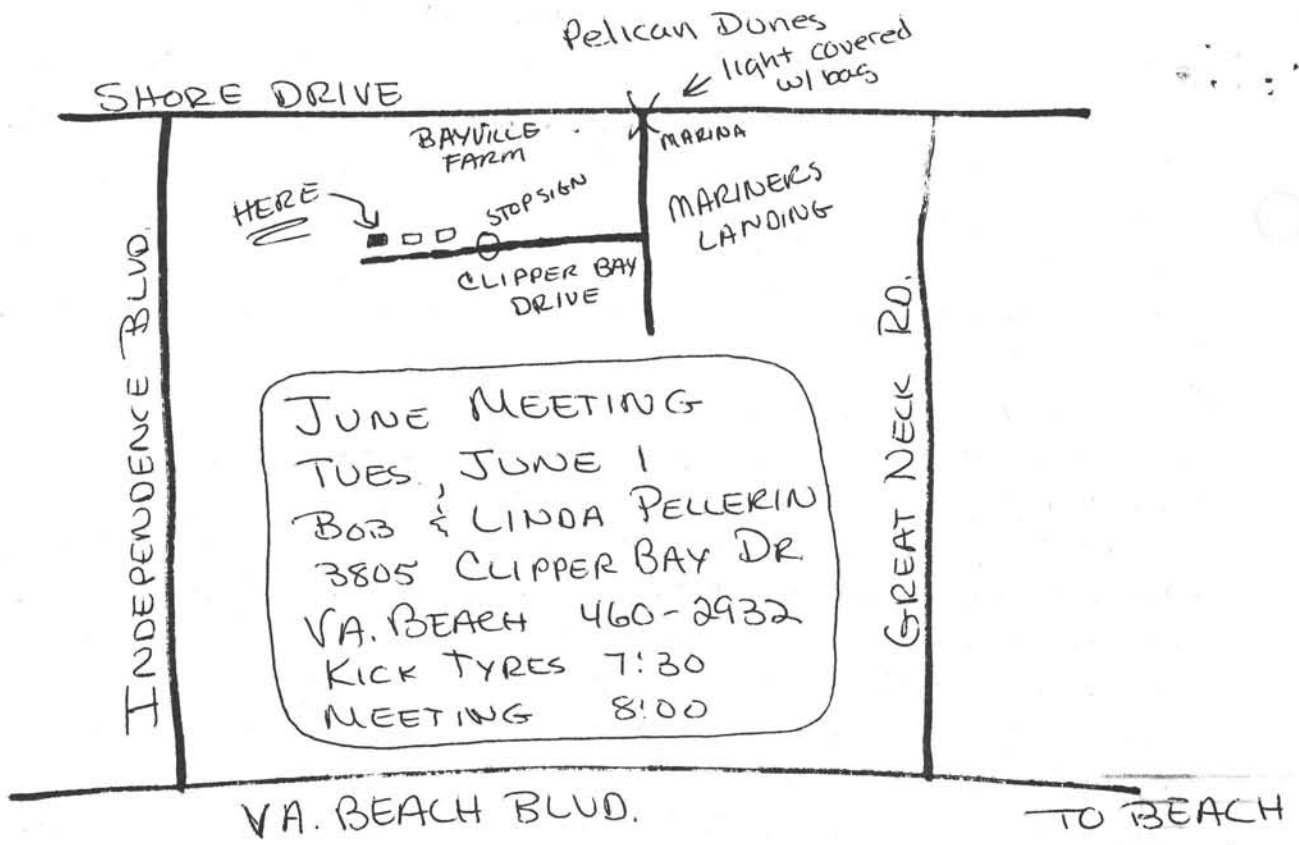 Pelican Dunes
light covered
w/ bag
SHORE DRIVE
BAYVILLE
FARM
MARINA
HERE
STOP SIGN
MARINERS
LANDING
CLIPPER BAY
DRIVE
INDEPENDENCE BLVD.
GREAT NECK RD.
JUNE MEETING
TUES., JUNE 1
BOB & LINDA PELLERIN
3805 CLIPPER BAY DR.
VA. BEACH 460-2932
KICK TYRES 7:30
MEETING 8:00
VA. BEACH BLVD.
TO BEACH